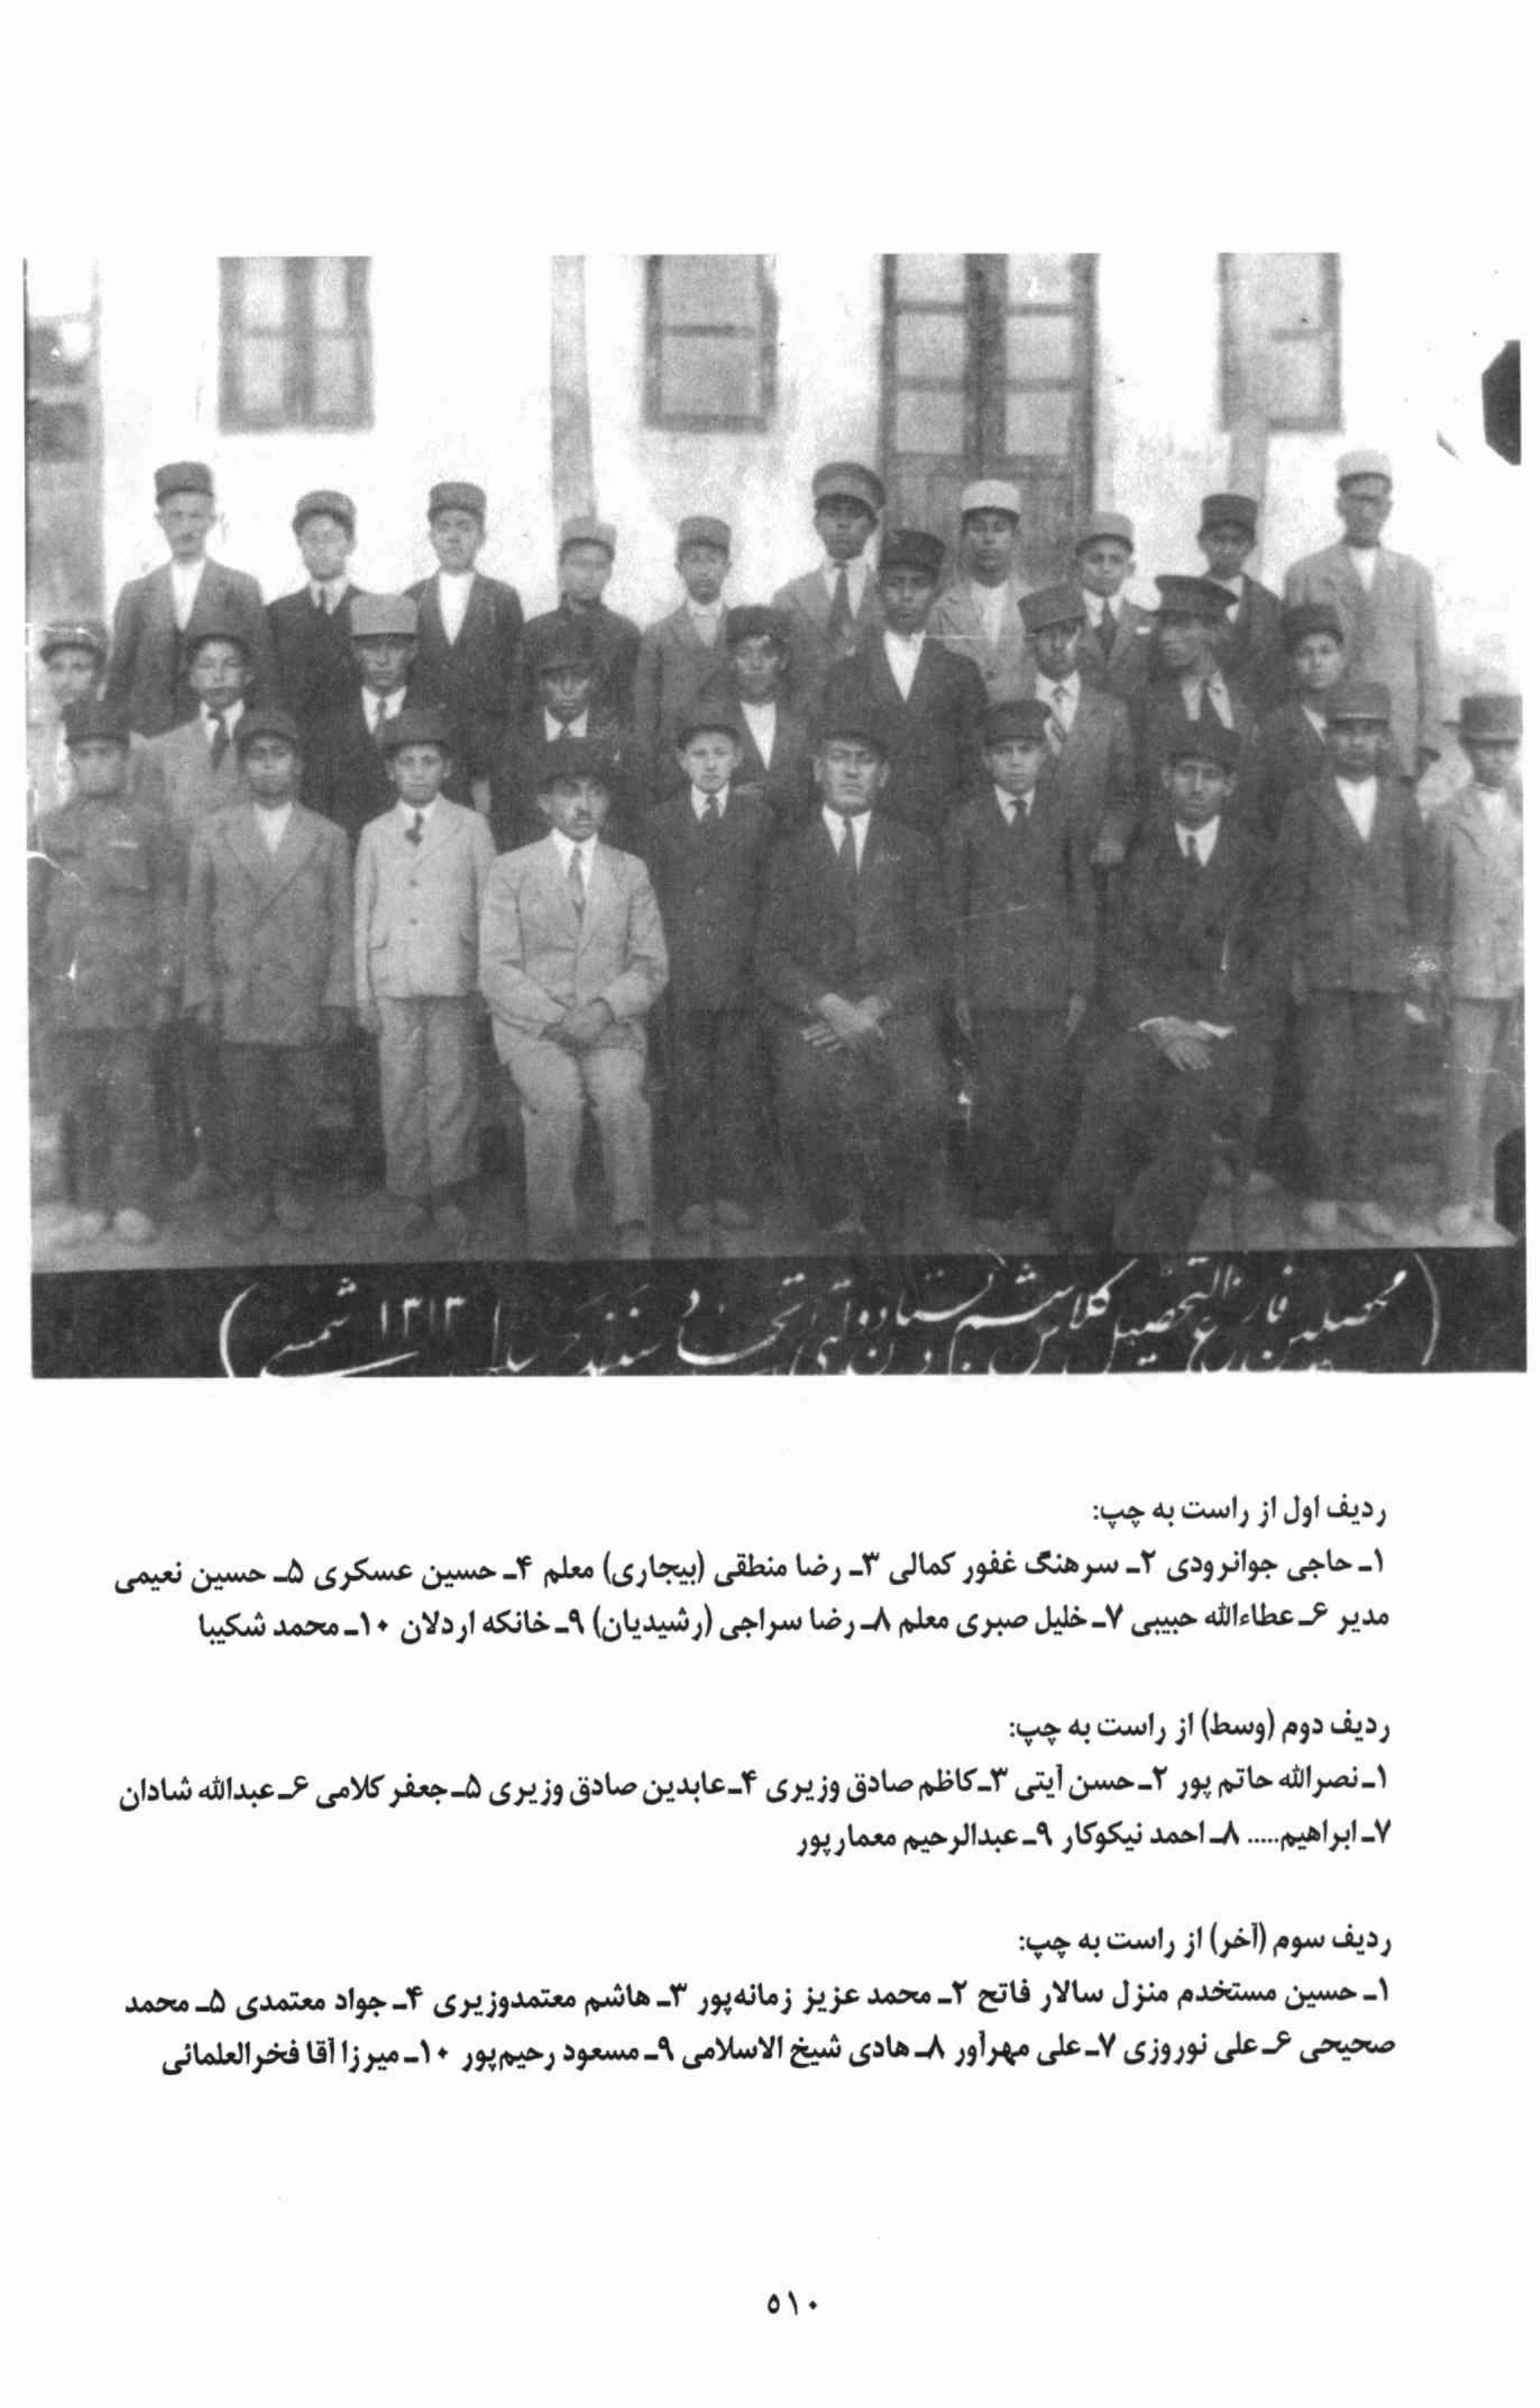 (محصلین فارغ التحصیل کلاس ششم دبستان اتحاد سنندج سال ۱۳۱۳ شمسی)
ردیف اول از راست به چپ:
۱ـ حاجی جوانرودی ۲ـ سرهنگ غفور کمالی ۳ـ رضا منطقی (بیجاری) معلم ۴ـ حسین عسکری ۵ـ حسین نعیمی
مدیر ۶ـ عطاءالله حبیبی ۷ـ خلیل صبری معلم ۸ـ رضا سراجی (رشیدیان) ۹ـ خانکه اردلان ۱۰ـ محمد شکیبا
ردیف دوم (وسط) از راست به چپ:
۱ـ نصرالله حاتم پور ۲ـ حسن آیتی ۳ـ کاظم صادق وزیری ۴ـ عابدین صادق وزیری ۵ـ جعفر کلامی ۶ـ عبدالله شادان
۷ـ ابراهیم..... ۸ـ احمد نیکوکار ۹ـ عبدالرحیم معمارپور
ردیف سوم (آخر) از راست به چپ:
۱ـ حسین مستخدم منزل سالار فاتح ۲ـ محمد عزیز زمانه‌پور ۳ـ هاشم معتمدوزیری ۴ـ جواد معتمدی ۵ـ محمد
صحیحی ۶ـ علی نوروزی ۷ـ علی مهرآور ۸ـ هادی شیخ الاسلامی ۹ـ مسعود رحیم‌پور ۱۰ـ میرزا آقا فخرالعلمائی
۵۱۰